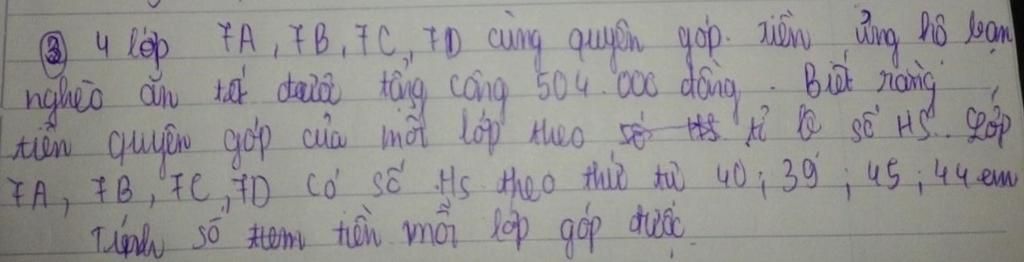 ③ 4 lớp 7A, 7B, 7C, 7D cùng quyên góp tiền ủng hộ bạn
nghèo ăn tết được tổng cộng 504.000 đồng. Biết rằng
tiền quyên góp của mỗi lớp theo số HS tỉ lệ số HS. Lớp
7A, 7B, 7C, 7D có số Hs theo thứ tự 40; 39; 45; 44 em
Tính số tiền mỗi lớp góp được.